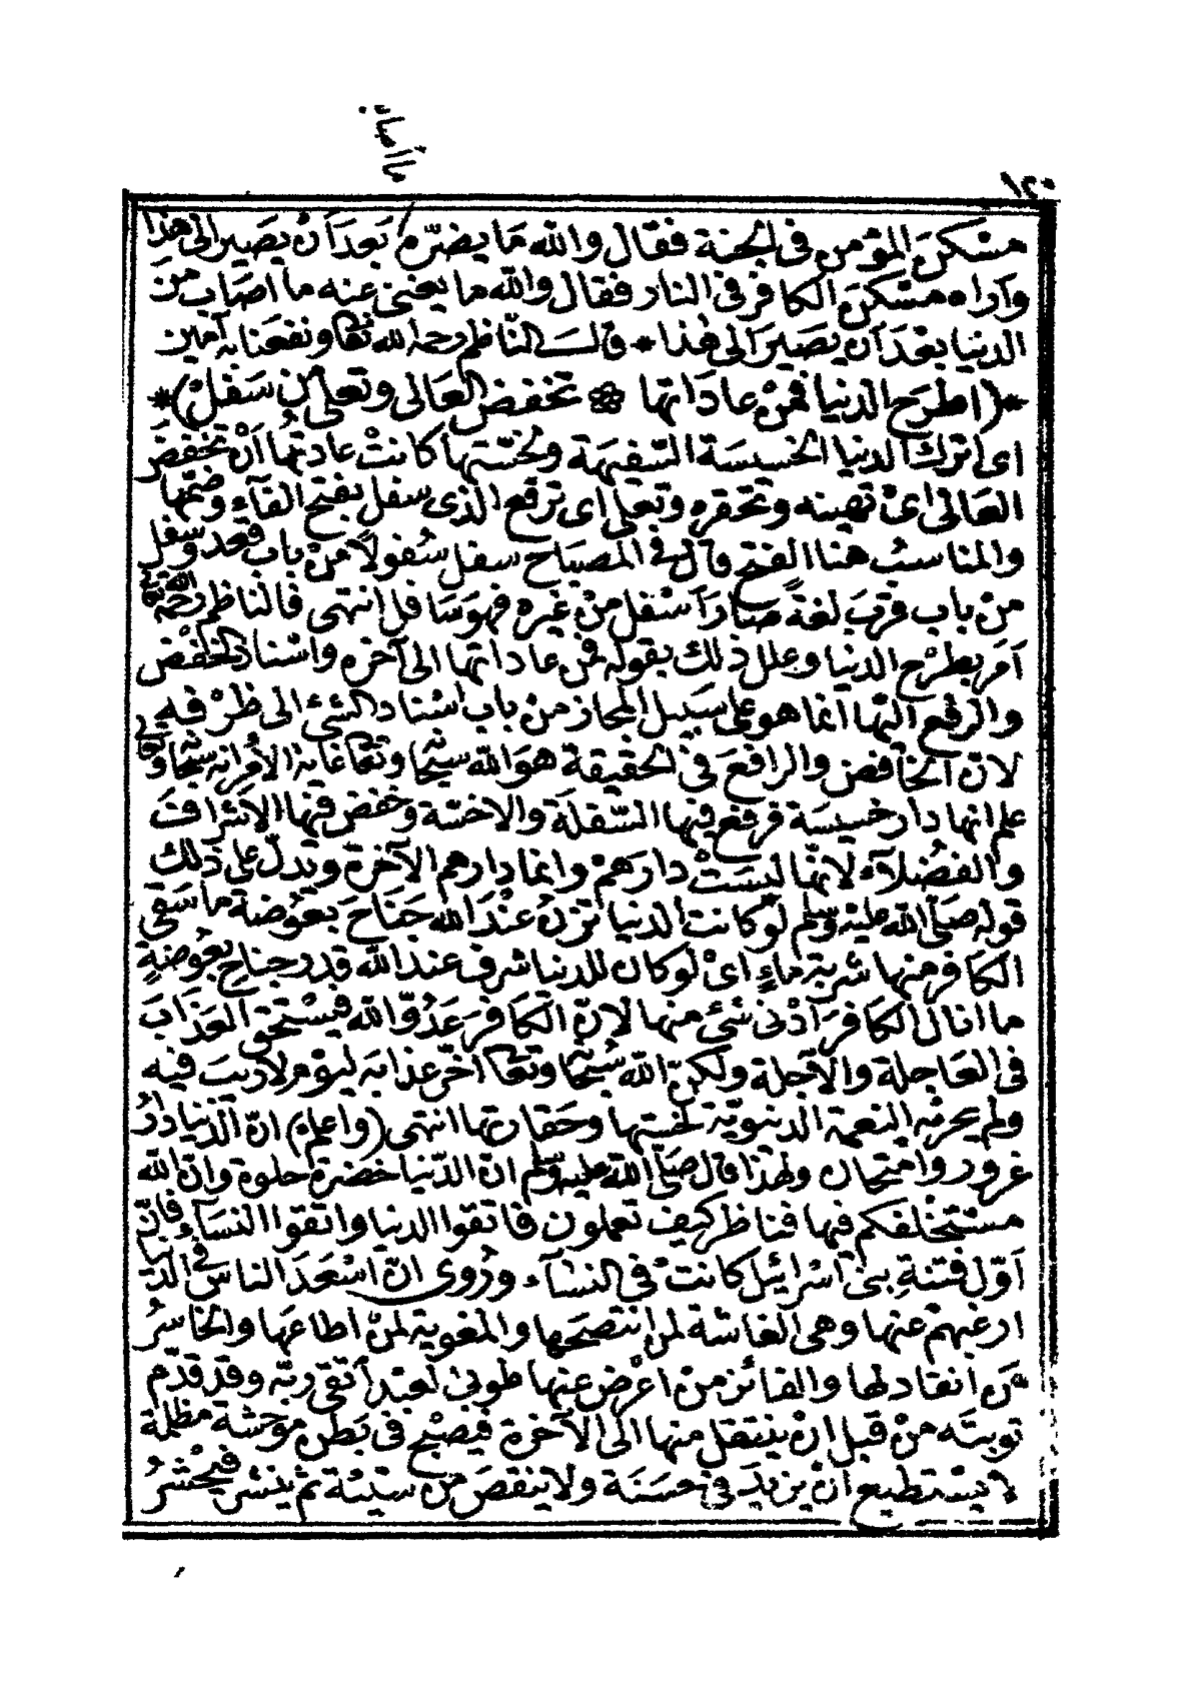 ما اصابه
١٢٠
مسْكنَ المؤمن فى الجنة فقال والله مَا يضرّه بَعدَ اَنْ يصَير الى هٰذا
وآراه مسْكنَ الكافر فى النار فقال والله ما يغنى عنه ما اصَاب منَ
الدنيا بعْدَ اَن يصَيَر الى هٰذا * قالـــ النّاظم رحمه الله تعا ونفعَنا به آمين
*(اطرَح الدنيا فمنْ عادَاتها ۞ تخفض العَالى وتعلى من سَفلْ)*
اى اترك الدنيا الخسيسَة السّفيهَة ولخسّتها كانتْ عادتُها اَنْ تخفضَ
العَالىْ اىْ تهينه وتحقره وتعلى اى ترفع الذى سفل بفتح الفآء وضمّها
والمناسبُ هنا الفتح قال فى المصباح سفل سُفولاً منْ باب قعد وسفل
منْ باب قربَ لغةً صَارَ اَسْفل منْ غيره فهوَ سَافل انتهى فالناظم رحمه الله تعالى
اَمَر بطرْح الدنيا وعلل ذلك بقوله فمن عاداتها الى آخره واسْناد الخفْض
والرفع اليْها انما هو على سَبيل المجاز منْ باب اسْناد الشئ الى ظرْفه
لانّ الخافض والرافعَ فى الحقيقة هوَ الله سبحانه وتعا غاية الأمْر انه سبحانه وتعالى
علم انها دار خسيسَة فرفع فيها السّفلَة والاخسّة وخفض فيها الاشرافَ
والفضُلآء لانّها ليسَتْ دارَهمْ وانما دارهم الآخرة ويَدلّ على ذلك
قوله صَلّى الله عليه وسلم لوْ كانت الدنيا تزنُ عنْدَ الله جَنَاحَ بعوُضة ما سَقى
الكافر منها شربة ماءٍ اىْ لو كان للدنيا شرف عند الله قدر جناح بعُوضةٍ
ما انال الكَافرَ اَدْنى شئ منها لانّ الكَافرَ عَدُوّ الله فيسْتحق العَذابَ
فى العَاجلة والآجلة ولكنّ الله سُبحانه وتعا اخّر عذابَه ليوْم لاريبَ فيه
ولم يحرمْه النعمة الدنيويّة لخسّتها وحَقارتها انتهى (واعلم) انّ الدّنيا دارُ
غرور وامتحان ولهذا قال صَلّى الله عليه وسلم انّ الدّنيا خضرة حلوة وان الله
مسْتخْلفكم فيها فناظر كيف تعملون فاتقوا الدنيا واتقوا النسَآء فانّ
اَوّل فتنةِ بنى اسْرائيل كانتْ فى النسَآء ورُوى انّ اسْعَدَ الناس فى الدّنيا
ارغبهمْ عنها وهى الغاشة لمن انتصَحها والمغوية لمنْ اطاعَها والخاسرُ
مَن انقاد لها والفائز منْ اعْرض عنها طوبىْ لعبْد اتقى ربّه وقد قدّم
توبتَه منْ قبل انْ ينتقل منها الى الآخرة فيصبْح فى بَطن موحْشة مظلمة
لا يسْتطيع انْ يزيدَ فى حسَنَة ولا ينقصَ منْ سَيّئة ثم ينشر فيحْشرُ